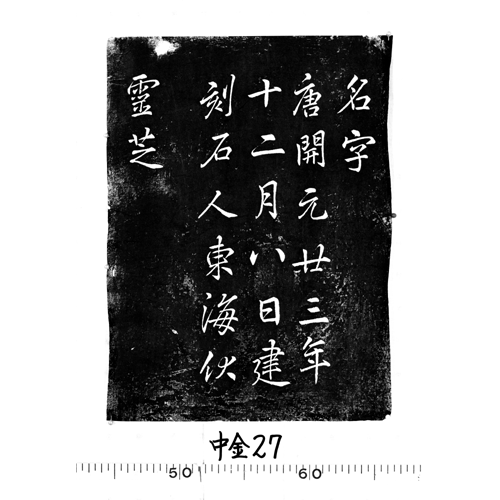 名字
唐開元廿三年
十二月八日建
刻石人東海伏
靈芝
中金27
50 60